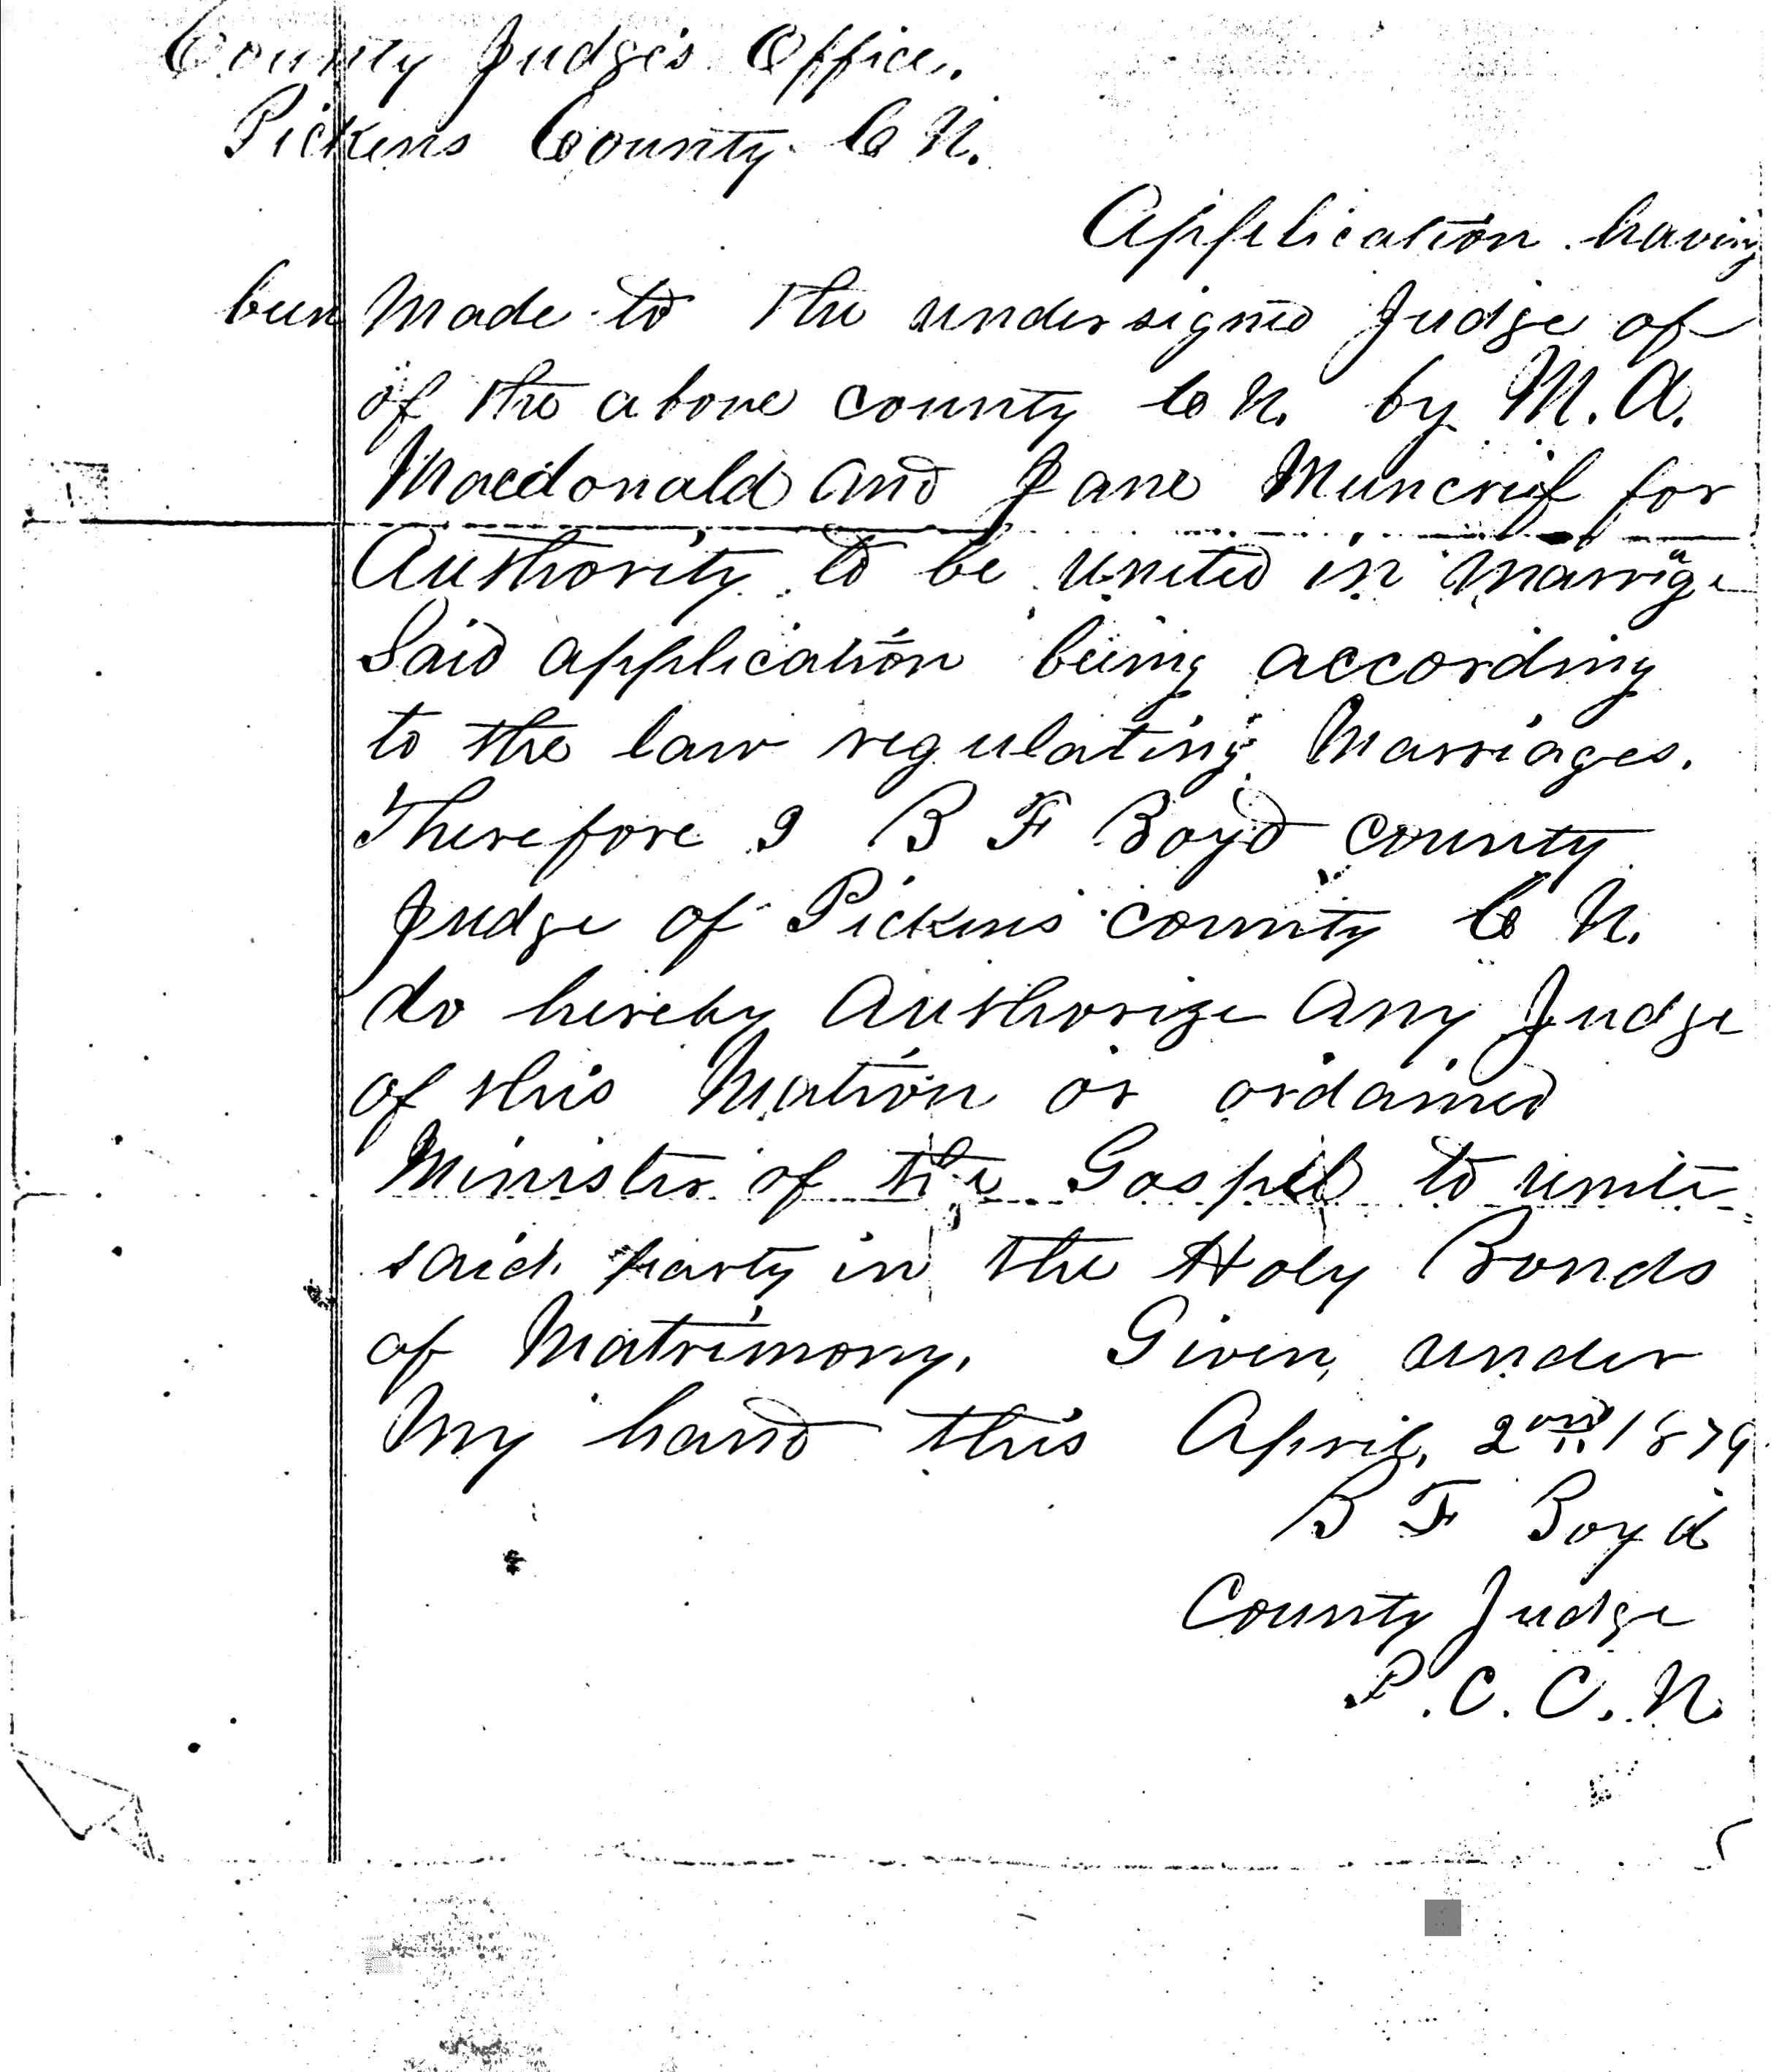 County Judge's Office.
Pickens County C N.
Application having
been Made to the undersigned Judge of
of the above county C N. by M. A.
Macdonald and Jane Muncrief for
Authority to be united in marrige
Said application being according
to the law regulating Marriages.
Therefore I B F Boyd county
Judge of Pickens county C N.
do hereby Authorize any Judge
of this Nation or ordained
Minister of the Gospel to unite
said party in the Holy Bonds
of Matrimony. Given under
My hand this April, 2nd 1879
B F Boyd
County Judge
P. C. C. N.